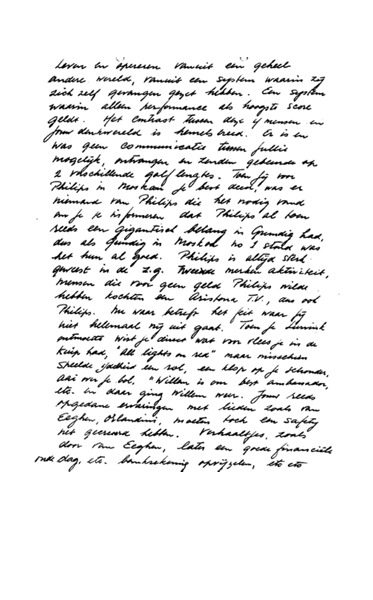 Leven en opereren vanuit een geheel
andere wereld, vanuit een system waarin zij
zich zelf gevangen gezet hebben. Een system
waarin alleen performance als hoogste score
geldt. Het contrast tussen deze mensen en
jouw denkwereld is hemels breed. Er is en
was geen communicatie tussen jullie
mogelijk, ontvangen en zenden gebeurde op
2 verschillende golf lengtes. Toen jij voor
Philips in Moskou je best deed, was er
niemand van Philips die het nodig vond
om je te informeren dat Philips al toen
reeds een gigantisch belang in Grundig had,
dus als Grundig in Moskou no 1 stond was
het hun al goed. Philips is altijd sterk
geweest in de z.g. Tweede merken aktiviteit,
mensen die voor geen geld Philips wilde
hebben kochten een Aristona T.V., dus ook
Philips. Nu waar betreft het feit waar jij
niet helemaal vrij uit gaat. Toen je
ontmoette wist je direct wat voor vlees je in de
kuip had, "All lights on red" maar misschien
speelde ijdelheid een rol, een klop op je schouder,
aai over je bol. "Willem is our best ambassador,
etc. en daar ging Willem weer. Jouw reeds
opgedane ervaringen met lieden zoals van
Eeghen, Orlandini, moeten toch een safety
net gecreeerd hebben. Verhaaltjes, zoals
door van Eeghen, later een goede financiële
oude dag, etc. bankrekening opvijzelen, etc etc